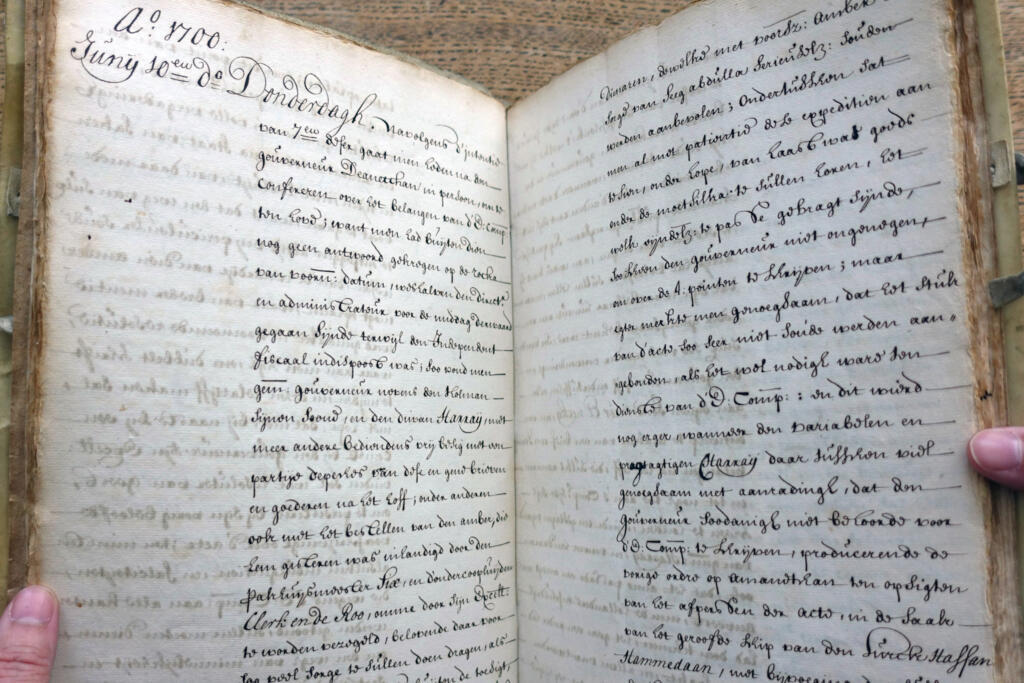 Ao. 1700:
Junij 10en do Donderdagh. Navolgens d'intentie
van 7en deser gaat men heden na den
gouverneur Deanetchan, in persoon, om te
Confereren over het belangen van d' E: Comp
ten hove; want men had buijten dien
nog geen antwoord gekregen op de
van voorn: datum, weshalven den direct
en administrateur voor de middag derwaard
gegaan sijnde terwijl den Independent
fiscaal indispoost was; soo vond men
gem: gouverneur nevens den
Sijnen Soond, en den divan Harraij, met
meer andere bediendens vrij besig met een
partije depeches van dese en gene brieven
en goederen na het hoff; onder anderen
ook met het bestellen van den amber, die
hem gisteren was inhandigd door den
pakhuijsmeester Six, en d'ondercoopluijden
Clerk en de Roo, omme door sijn Excelt:
te worden versegeld, belovende daar voor
soo veel sorge te sullen doen dragen, als
dewelke met voorsz: amber
van abdulla serieuselz: souden
werden aanbevolen; ondertusschen sat
men al met patientie dese expeditien aan
te sien, onder hope, van haast wat goeds
onder de te sullen horen, het
welk eijndelz: te pas gebragt sijnde,
scheen den gouverneur niet ongenegen,
om over de 4: pointen te schrijven; maar
egter merkte men genoegsaam, dat het stuk
van d'acte, soo seer niet soude werden aan-
gebonden, als het wel nodigh ware ten
dienste van d' E: Comp: : en dit wierd
nog erger, wanneer den variabelen en
Harraij daar tusschen viel
genoegsaam met aanradingh, dat den
gouverneur soodanigh niet behoorde voor
d' E: Comp: te schrijven, producerende de
vorige ordre op Amanathan ten opsigten
van het afperssen der acte, in de saak
van het geroofde schip van den Turck Hassan
Hammedaan, met bijvoeging